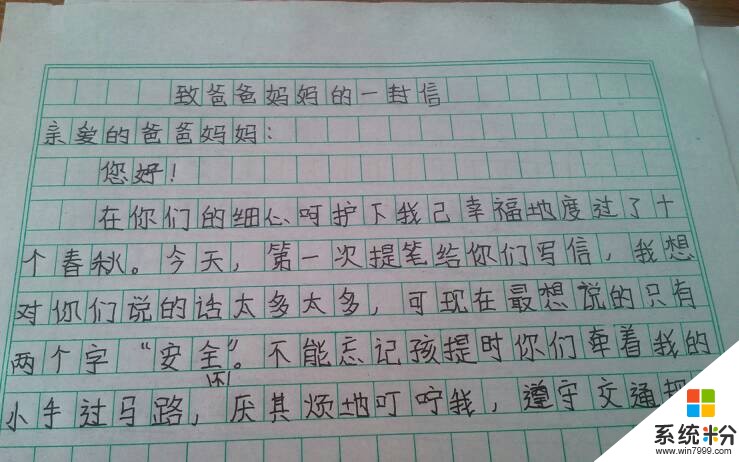 致爸爸妈妈的一封信
亲爱的爸爸妈妈：
您好！
在你们的细心呵护下我已幸福地度过了十
个春秋。今天，第一次提笔给你们写信，我想
对你们说的话太多太多，可现在最想说的只有
两个字“安全”。不能忘记孩提时你们牵着我的
不
小手过马路，厌其烦地叮咛我，遵守交通
系统粉
www.win7999.com